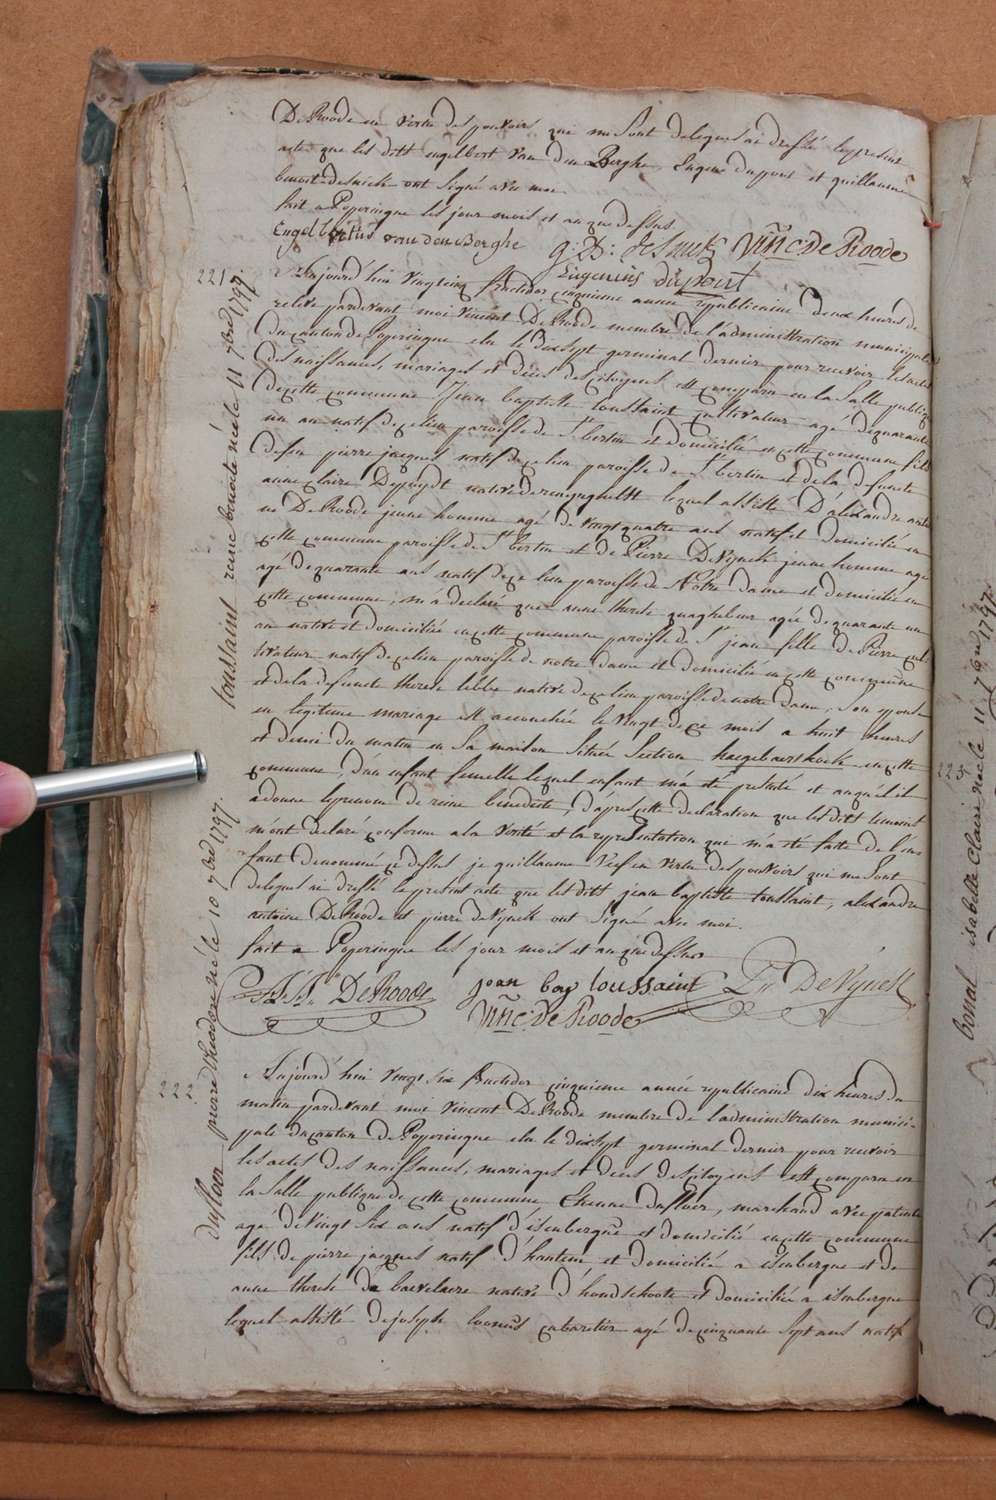 De Roode en vertu des pouvoirs qui me sont delegues ai dressé le present
acte que les dits engelbert van den Berghe, Eugene dupont et guillaume
benoit desmedt ont signé avec moi
fait a Poperingue les jour mois et an que dessus
Engelbertus van den Berghe g: B: desmedt Vinc: De Roode
Eugenius dupont
221
toussaint reine benoite née le 11 7bre 1797.
Aujourd'hui vingtcinq fructidor cinquieme année republicaine deux heures de
relevé pardevant moi Vincent De Roode membre de l'administration municipale
du canton de Poperingue elu le dixsept germinal dernier pour recevoir les actes
des naissances, mariages et deces des citoyens est comparu en la salle publique
de cette commune Jean baptiste toussaint cultivateur agé de quarante
un an natif de ce lieu paroisse de St bertin et domicilié en cette commune fils
de feu pierre jacques natif de ce lieu paroisse de St bertin et de la defuncte
anne claire native de lequel assisté D'alexandre antoi
ne De Roode jeune homme agé de vingt quatre ans natif et domicilié en
cette commune paroisse de St bertin et de Pierre De Vynck jeune homme agé
agé de quarante ans natif de ce lieu paroisse de Notre dame et domicilié en
cette commune, m'a declaré que anne therese quaghebeur agée de quarante un
an native et domiciliée en cette commune paroisse de St jean fille de Pierre cul
tivateur natif de ce lieu paroisse de notre dame et domicilié en cette commune
et de la defuncte therese lebbe native de ce lieu paroisse de notre dame, son epouse
en legitime mariage est accouchée le vingt de ce mois a huit heures
et demi du matin en sa maison située section en cette
commune, d'un enfant femelle lequel enfant m'a eté presenté et auquel il
a donné le prenom de reine benedicte, d'apres cette declaration que les dits temoins
m'ont declaré conforme a la verité et la representation qui m'a eté faite de l'en
fant denommé ci dessus je guillaume en vertu des pouvoirs qui me sont
delegues ai dressé le present acte que les dits jean baptiste toussaint, alexandre
antoine De Roode et pierre de Vynck ont signé avec moi.
fait a Poperingue les jour mois et an que dessus
A: A: De Roode joan bap toussaint Pr De Vynck
Vinc: De Roode
222
dufloer pierre né le 10 7bre 1797.
Aujourd'hui vingt six fructidor cinquieme année republicaine dix heures du
matin pardevant moi Vincent De Roode membre de l'administration munici-
pale du canton de Poperingue elu le dixsept germinal dernier pour recevoir
les actes des naissances, mariages et deces des citoyens est comparu en
la salle publique de cette commune, Etienne dufloer, marchand avec patente
agé de vingt six ans natif d'isenbergue et domicilié en cette commune
fils de pierre jacques natif d'hantem et domicilié a isenbergue et de
anne therese de baevelaere native d'hondschoote et domiciliée a isenbergue
lequel assisté de joseph coenus cabaretier agé de cinquante sept ans natif
bonal isabelle claire née le 11 7bre 1797.
223